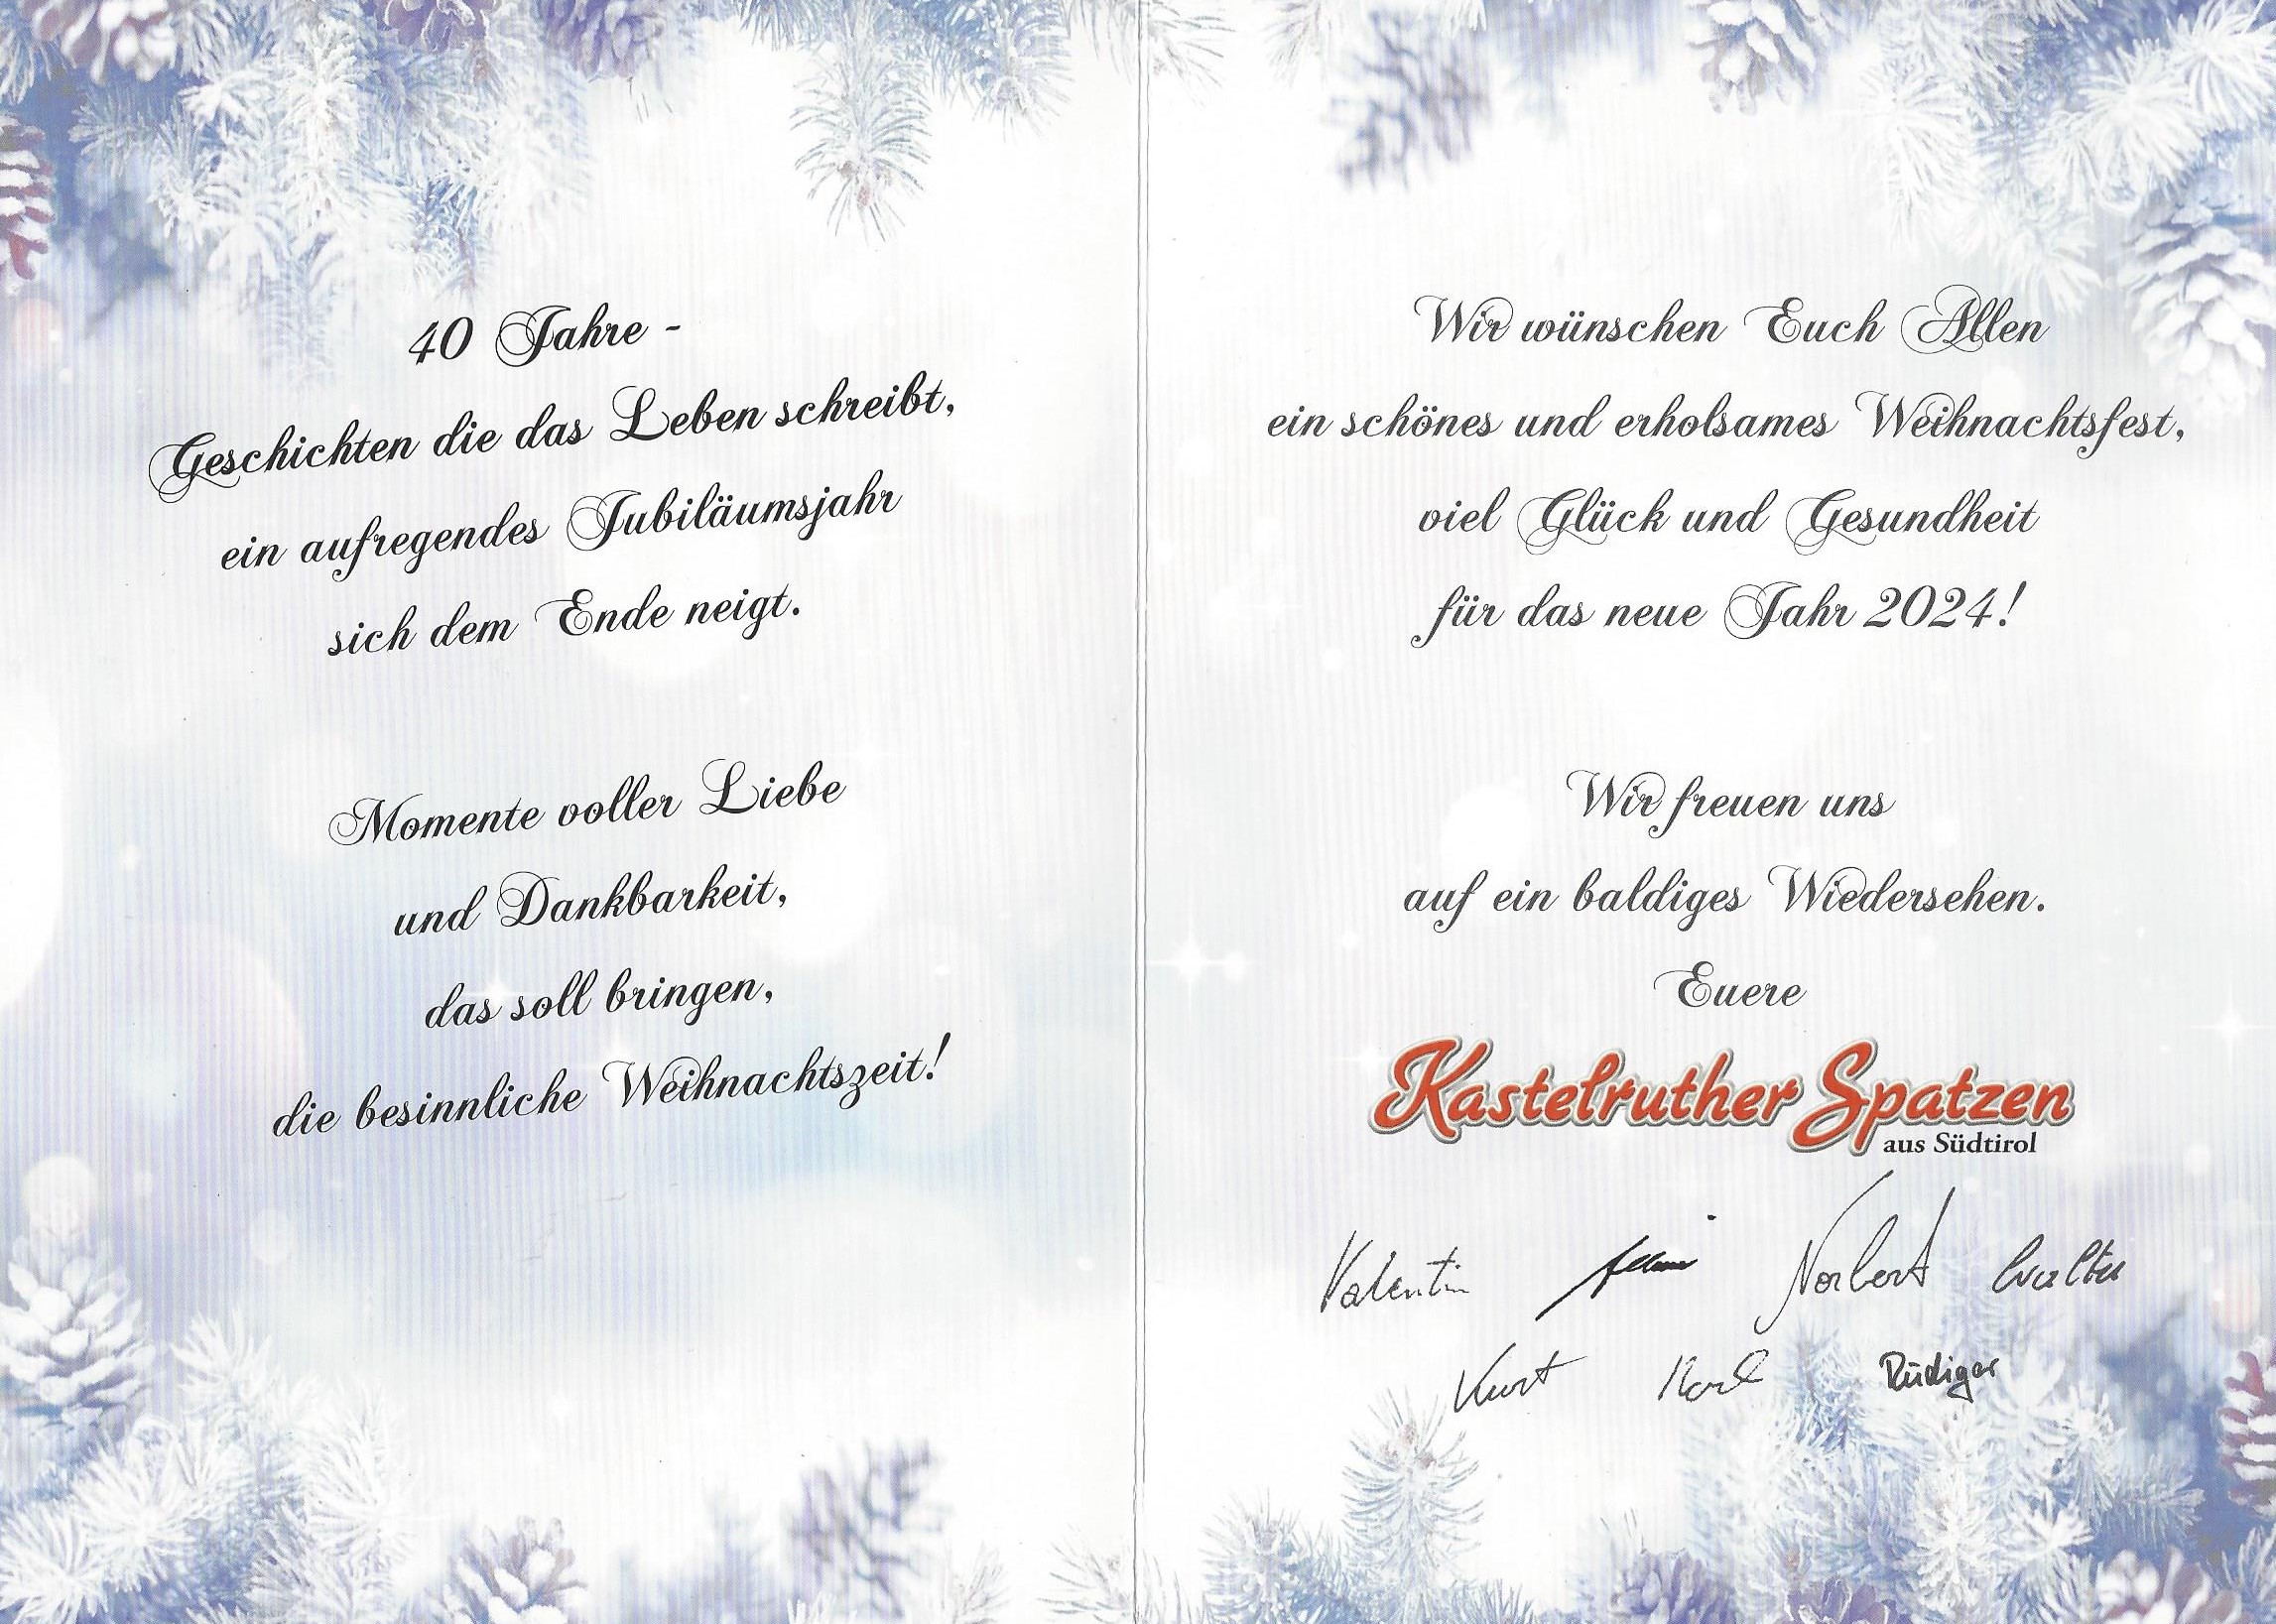 40 Jahre -
Geschichten die das Leben schreibt,
ein aufregendes Jubiläumsjahr
sich dem Ende neigt.
Momente voller Liebe
und Dankbarkeit,
das soll bringen,
die besinnliche Weihnachtszeit!
Wir wünschen Euch Allen
ein schönes und erholsames Weihnachtsfest,
viel Glück und Gesundheit
für das neue Jahr 2024!
Wir freuen uns
auf ein baldiges Wiedersehen.
Euere
Kastelruther Spatzen
aus Südtirol
Valentin Norbert Walter
Kurt Karl Rüdiger